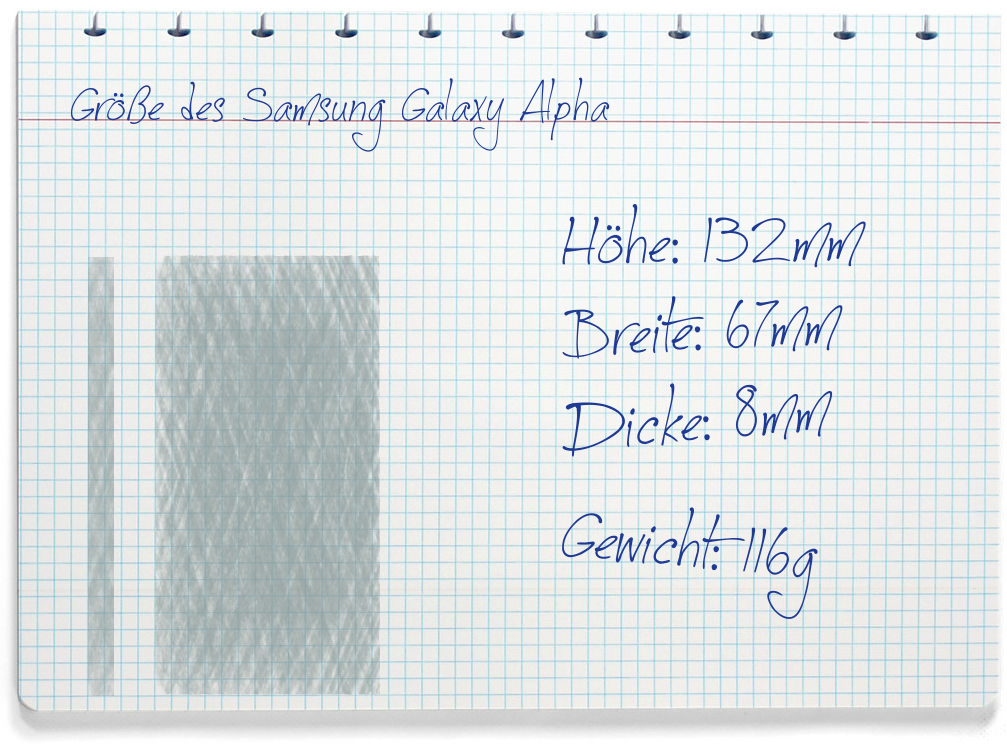 Größe des Samsung Galaxy Alpha
Höhe: 132mm
Breite: 67mm
Dicke: 8mm
Gewicht: 116g